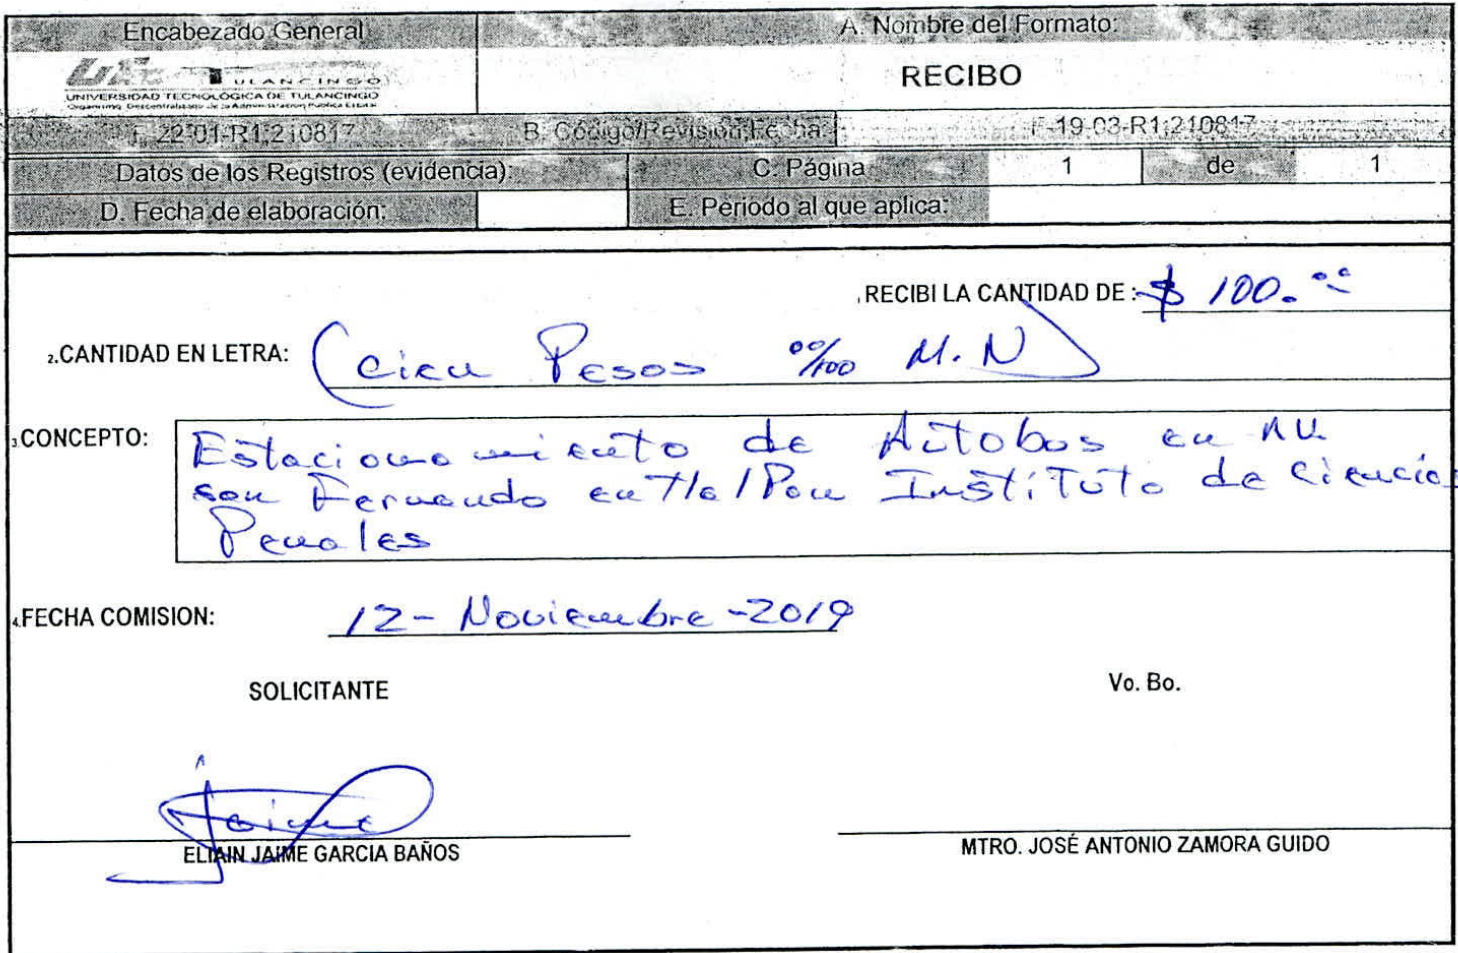 Encabezado General
A. Nombre del Formato:
TULANCINGO
UNIVERSIDAD TECNOLÓGICA DE TULANCINGO
Organismo Descentralizado de la Administración Pública Estatal
RECIBO
F-22-01-R1;210817
B. Código/Revisión;Fecha:
F-19-03-R1;210817
Datos de los Registros (evidencia):
C. Página
1
de
1
D. Fecha de elaboración:
E. Periodo al que aplica:
1.RECIBI LA CANTIDAD DE : $ 100.00
2.CANTIDAD EN LETRA: (cien Pesos 00/100 M.N)
3.CONCEPTO:
Estacionamiento de Autobus en AU.
san Fernando en Tlalpan Instituto de Ciencias
Penales
4.FECHA COMISION: 12- Noviembre -2019
SOLICITANTE
Vo. Bo.
Jaime
ELIAIN JAIME GARCIA BAÑOS
MTRO. JOSÉ ANTONIO ZAMORA GUIDO